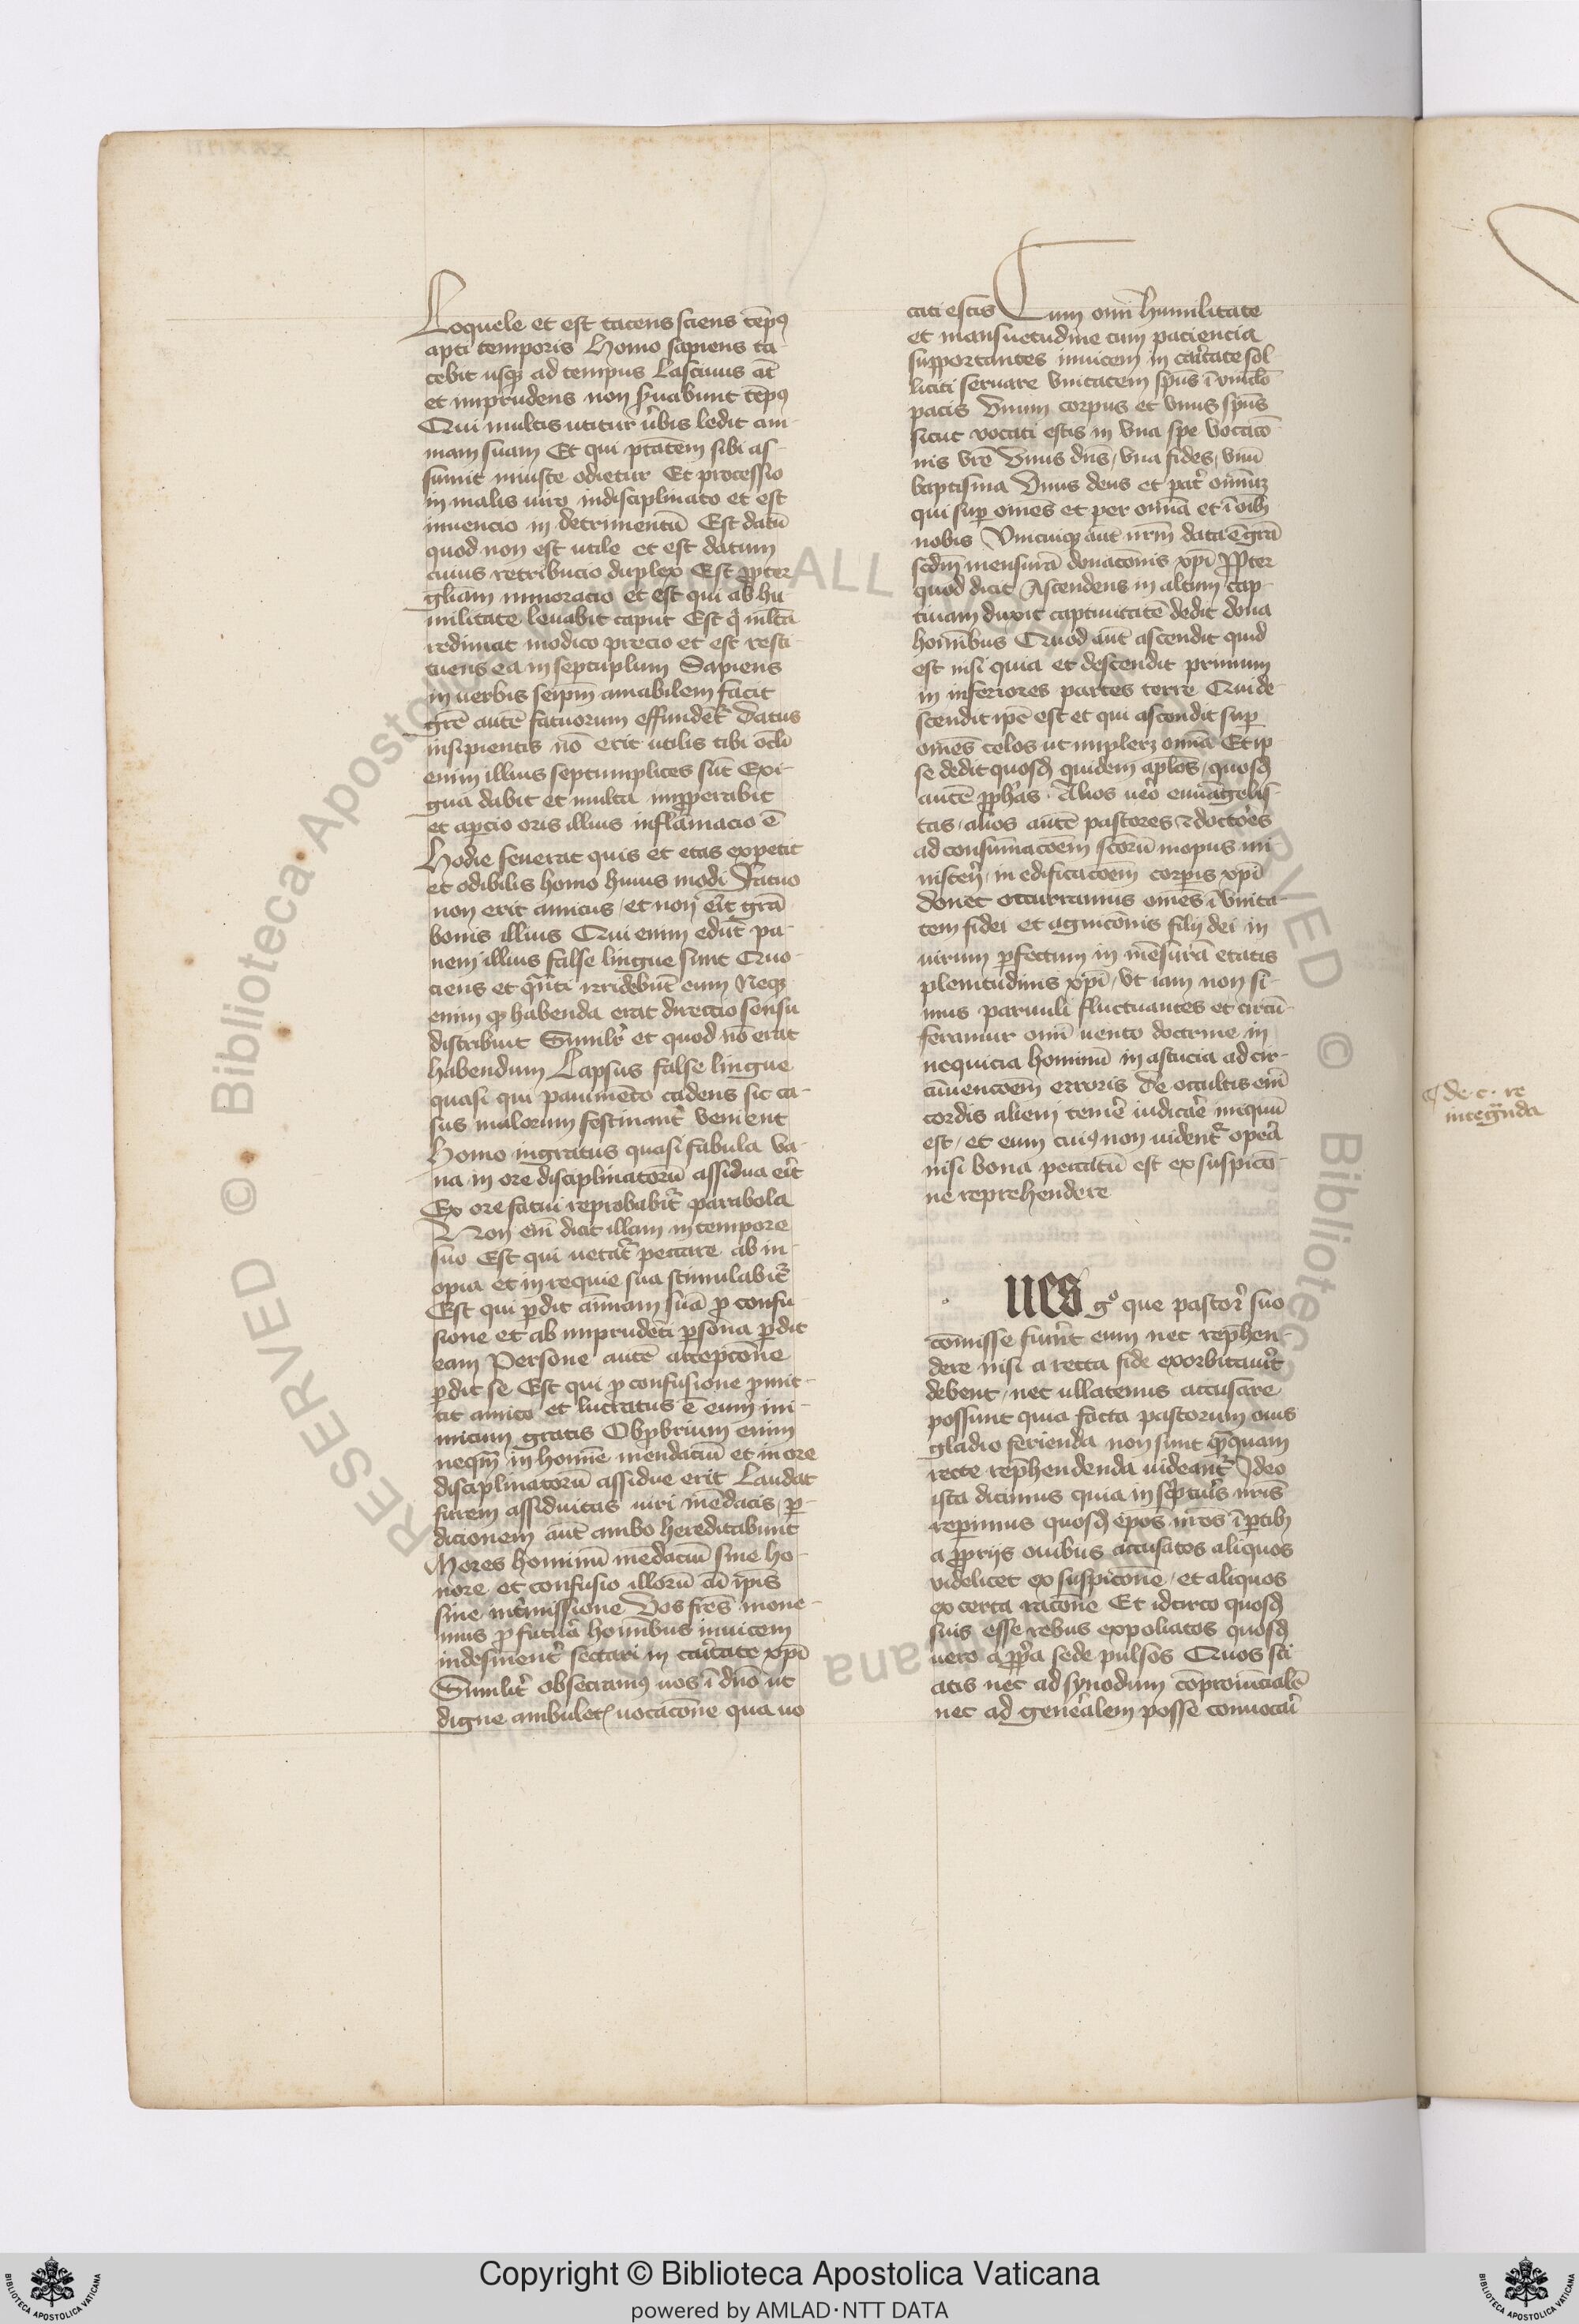 Loquele et est tacens sciens temp9
apti temporis Homo sapiens ta-
cebit usq3 ad tempus Lasciuus at̄
et imprudens non s̄uabunt temp9
Qui multis utitur v̄bis ledit ani-
mam suam Et qui ptātem sibi as-
sumit iniuste odietur Et processio
in malis uiro indisciplinato et est
inuencio in detrimentū Est datū
quod non est utile et est datum
cuius retribucio duplex Est ꝓpter
gl̄iam minoracio et est qui ab hu
militate leuabit caput Est q̇ ml̄ta
redimat modico precio et est resti-
tuens ea in septuplum Sapiens
in uerbis seip̄m amabilem facit
gr̄e autē fatuorum effundēt̄ Datus
insipientis nō erit utilis tibi ocl̄i
enim illius septemplices sūt Exi-
gua dabit et multa imꝓperabit
et aꝑcio oris illius inflāmacio ē
Hodie feuerat quis et etas expetit
et odibilis homo huius modi Fatuo
non erit amicus et non er̄t gr̄a
bonis illius Qui enim edūt pa-
nem illius false lingue sunt Quo-
ciens et q̄nti irridebūt eum Neq3
enim qd̄ habenda erat directo sensu
distribuit Simil̄r et quod nō erat
habendum Lapsus false lingue
quasi qui pauimēto cadens sic ca-
sus malorum festinant̄ venient
Homo ingratus quasi fabula va-
na in ore disciplinatorū assidua er̄t
Ex ore fatui reprobabit̄ parabola
Non em̄ dicit illam in tempore
suo Est qui uetat̄ peccare ab in-
opia et in requie sua stimulabit̄
Est qui ꝑdit an̄imam suā ꝓ confu-
sione et ab imprudēti ꝑsona ꝑdit
eam Persone autē accepcōne
ꝑdit se Est qui ꝓ confusione ꝓmit-
tit amico et lucratus ē eum ini-
micum gratis Obꝓbrium enim
neq̄m in homīe mendaciū et in ore
disciplinatorū assidue erit Laudat
furem assiduitas uiri mēdacis ꝑ-
dicionem aūt ambo hereditabunt
Mores hominū mēdaciū sine ho-
nore et confusio illorū cū ip̄is
sine int̄missione Vos fr̄es mone-
mus ꝓ futura hominibus inuicem
indesinent̄ sectari in car̄tate xp̄i
Similit̄ obsecram9 uos ī dn̄o ut
digne ambulet̄ uocacōne qua uo
cati estis Cum omī humilitate
et mansuetudine cum paciencia
supportantes inuicem in car̄tate sol-
liciti seruare vnitatem sp̄us ī vnīclo
pacis Vnum corpus et vnus sp̄us
sicut vocati estis in vna spe vocacō-
nis vr̄e Vnus dn̄s, vna fides, vnū
baptisma Vnus deus et pat̄ omniu3
qui suꝑ omēs et per omīa et ī oīb3
nobis Vnicuiq3 aūt nr̄m data ē gr̄a
scdm̄ mensurā donacōnis xp̄i Ꝓpter
quod dicit Ascendens in altum cap-
tiuam duxit captiuitatē dedit dona
hominibus Quod aūt ascendit quid
est nisi quia et descendit primum
in inferiores partes terre Qui de-
scendit ip̄e est et qui ascendit suꝑ
omēs celos ut implerȝ omīa Et ip-
se dedit quosd3 quidem ap̄los, quosd3
autē ꝓph̄as Alios uero euāgelis-
tas, alios autē pastores et doctores
ad consumacōem sc̄orū in opus mi-
nisterii, in edificacōem corꝑis xp̄i
donec occurramus omēs ī vnita-
tem fidei et agnicōnis filij dei in
uirum ꝑfectum in mēsurā etatis
plenitudinis xp̄i, vt iam non si-
mus paruuli fluctuantes et circū-
feramur omī uento doctrine in
nequicia hominū in astucia ad cir-
cūuencoem erroris De occultis em̄
cordis aliem temē iudicare iniquū
est, et eum cui9 non uident̄ opera
nisi bona peccatū est ex suspicō-
ne reprehendere
ues g° que pastori suo
cōmisse fuerūt eum nec rep̄hen-
dere nisi a recta fide exorbitauīt
debent, nec ullatenus accusare
possunt quia facta pastorum ouis
gladio ferienda non sunt q̄mquam
recte rep̄hendenda uideant̄ Ideo
ista dicimus quia in sc̄ptur̄s nr̄is
reꝑimus quosd3 ep̄os nr̄os ī ꝑtib3
a ꝓprijs ouibus accusatos aliquos
videlicet ex suspicōne, et aliquos
ex certa racōne Et idcirco quosd3
suis esse rebus expoliatos quosd3
uero a ꝓp̄a sede pulsos Quos sci-
atis nec ad synodum cōprouincialē
nec ad generalem posse conuocari
de · c · re
integ̃nda
© Biblioteca Apostolica Vaticana
ALL RIGHTS RESERVED
Copyright © Biblioteca Apostolica Vaticana
powered by AMLAD·NTT DATA
BIBLIOTECA APOSTOLICA VATICANA
BIBLIOTECA APOSTOLICA VATICANA